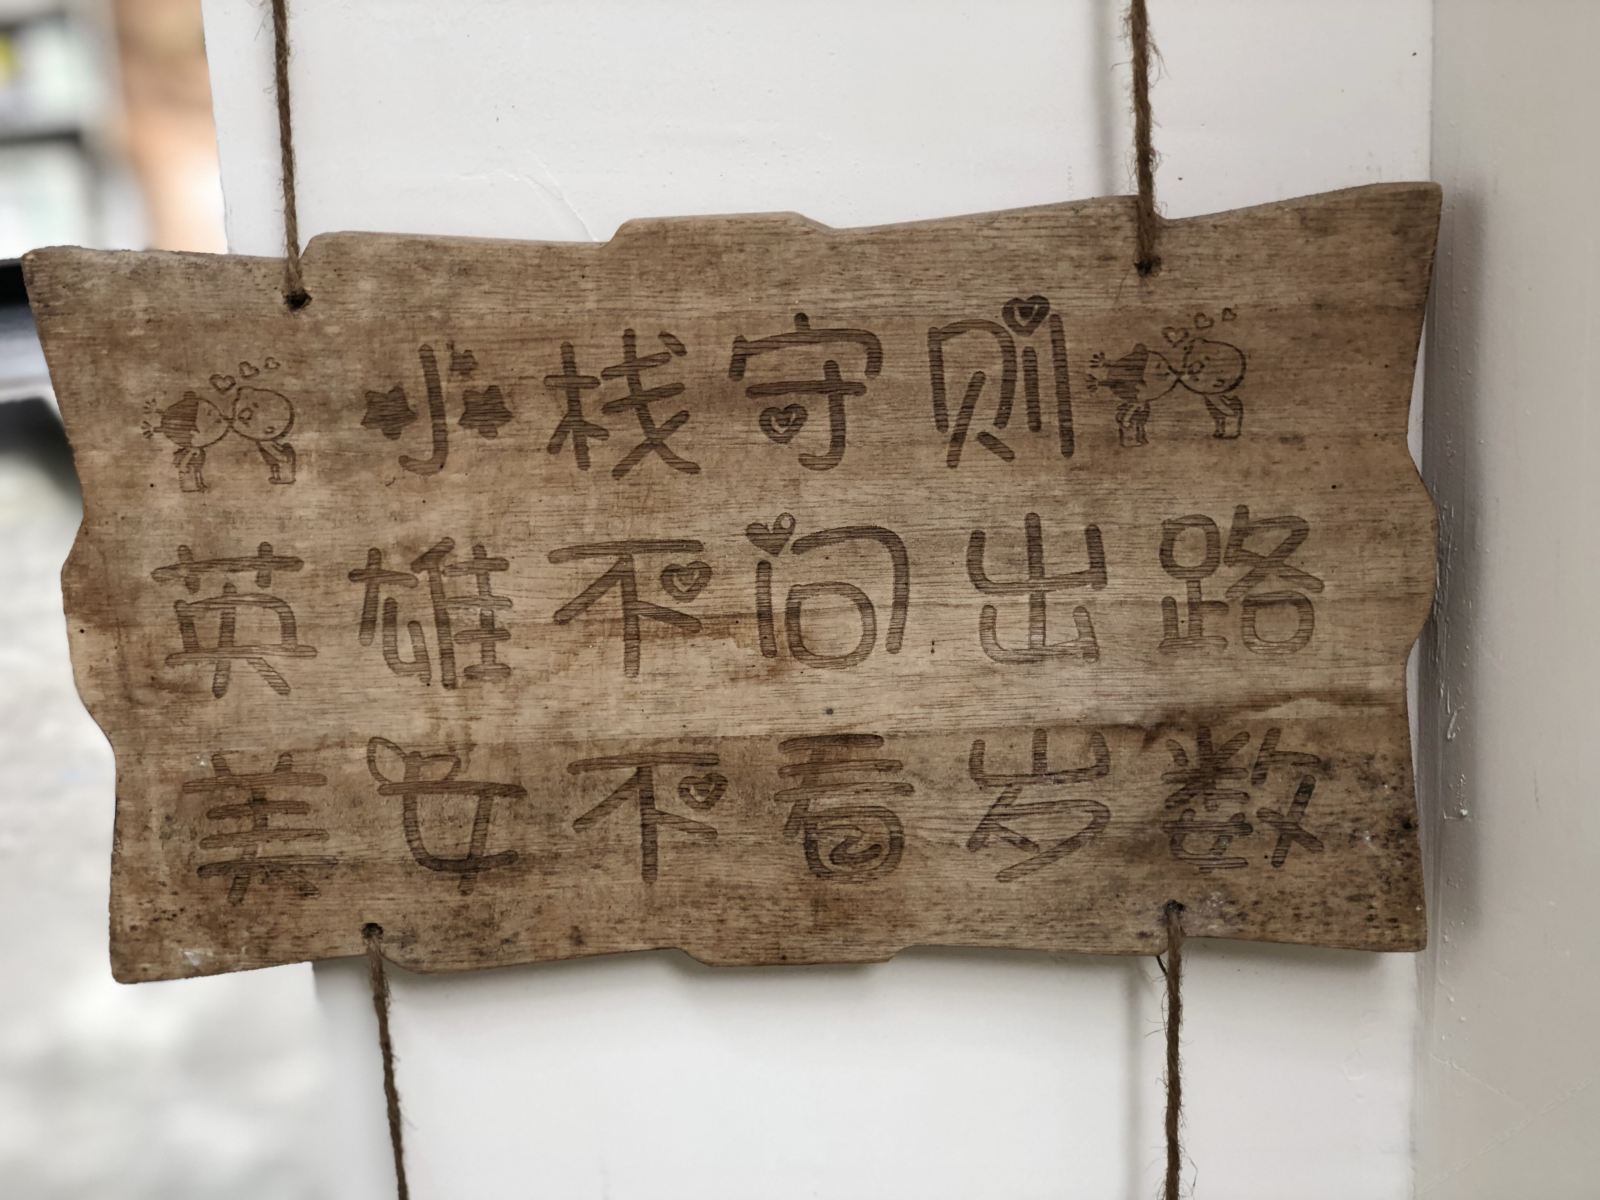 小栈守则
英雄不问出路
美女不看岁数